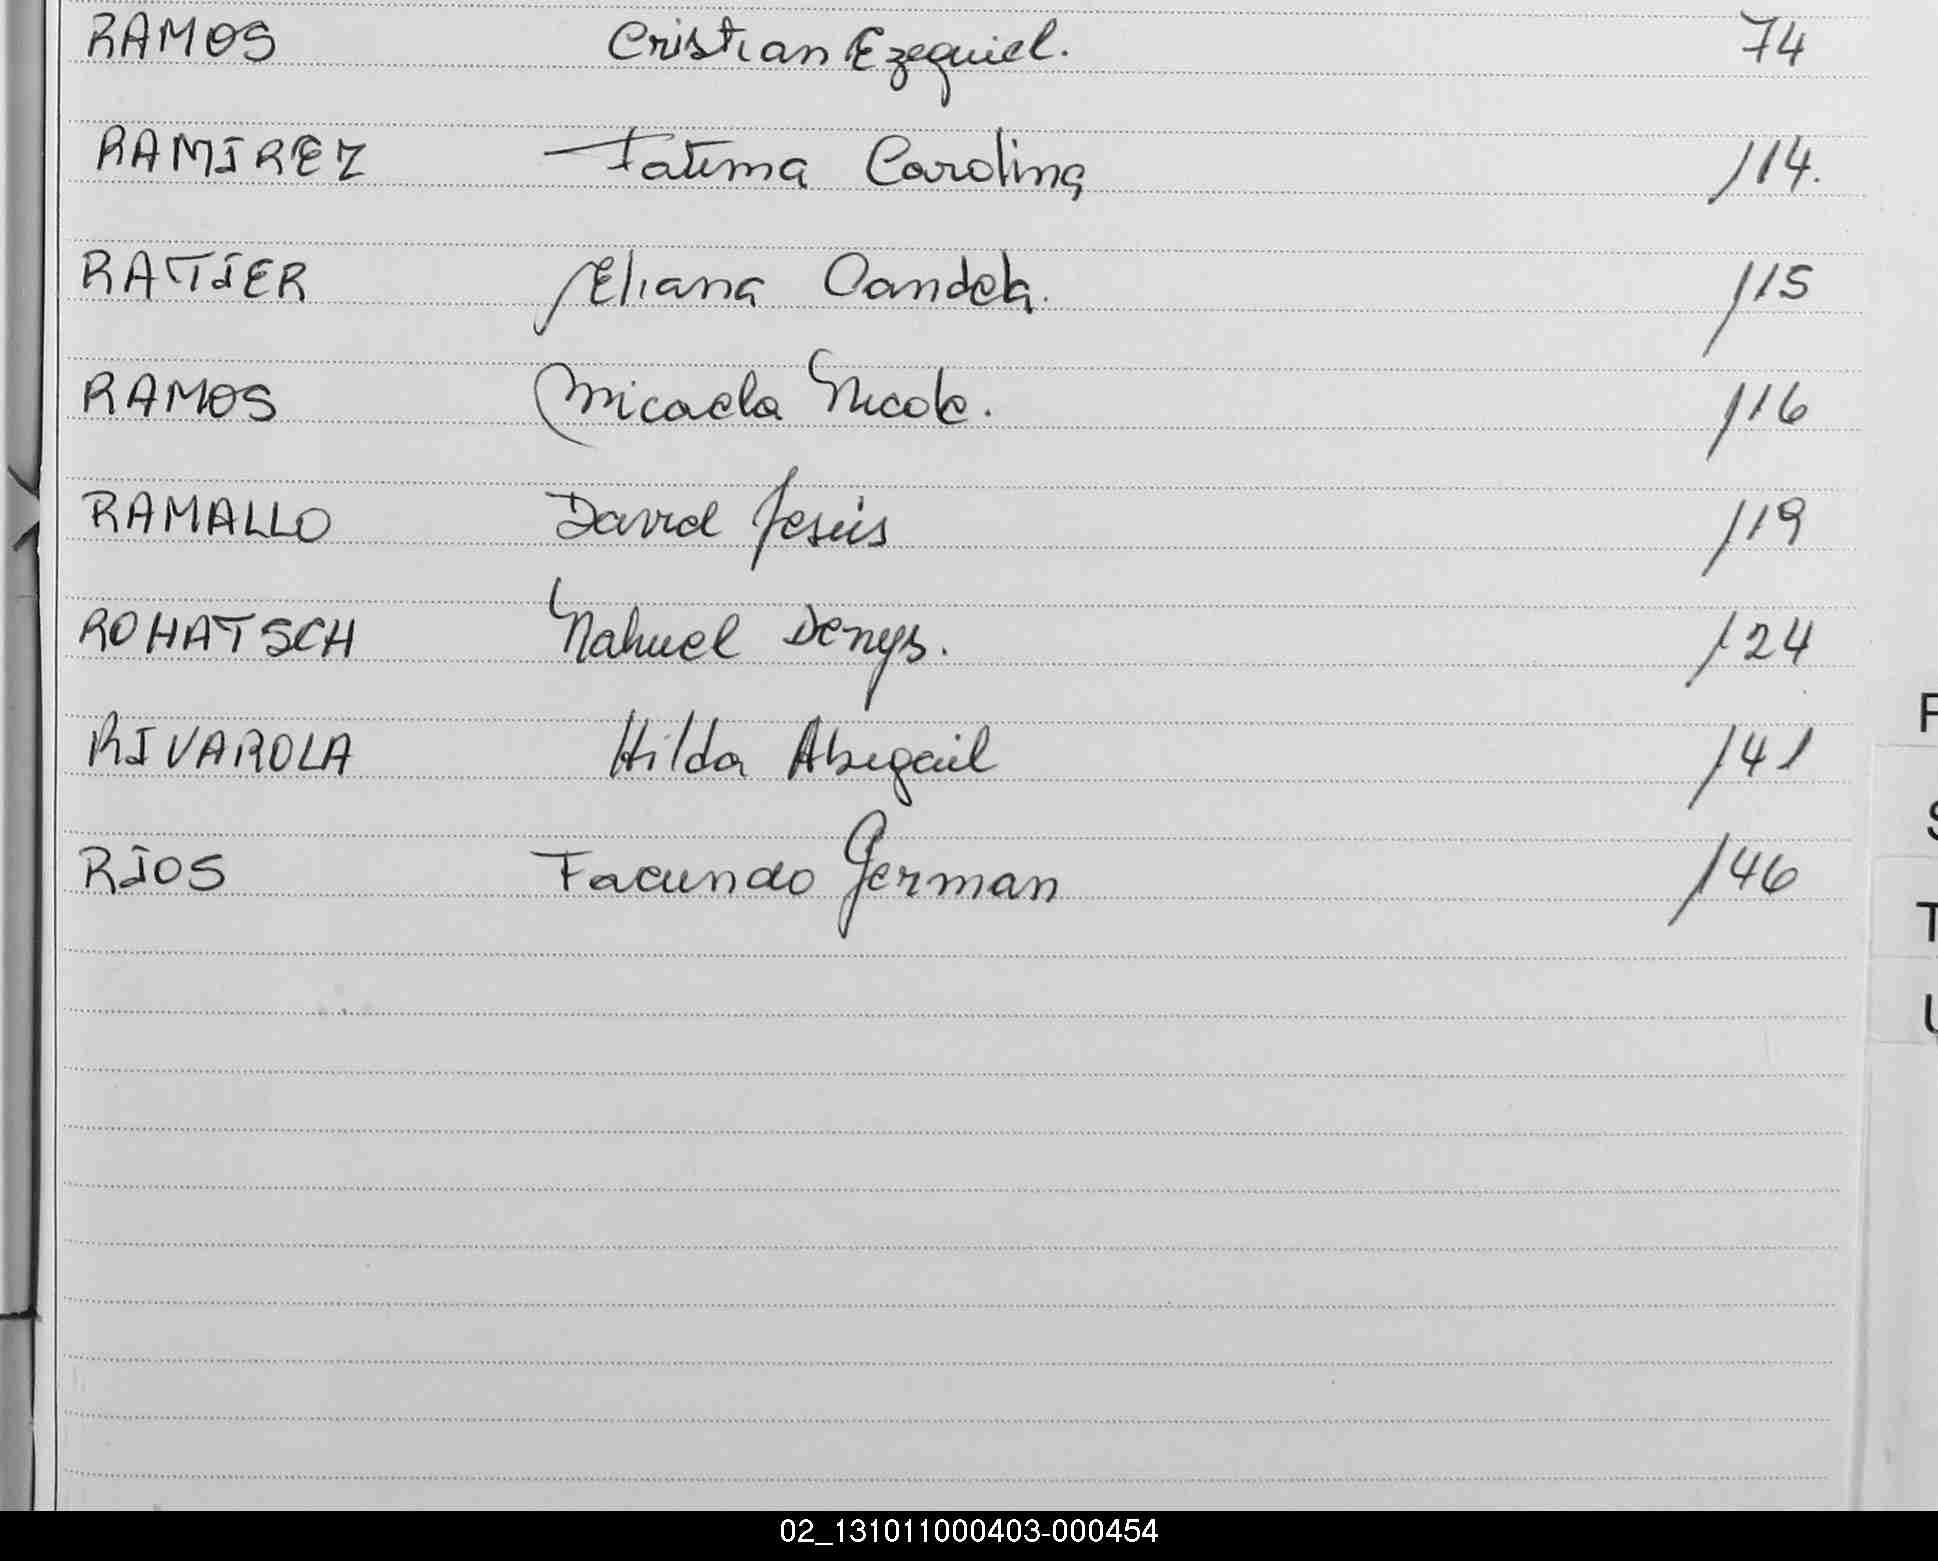 RAMOS Cristian Ezequiel. 74
RAMIREZ Fatima Carolina 114.
RATIER Eliana Candela. 115
RAMOS Micaela Nicole. 116
RAMALLO David Jesús 119
ROHATSCH Nahuel Denys. 124
RIVAROLA Hilda Abigail 141
RIOS Facundo German 146
S
T
U
02_131011000403-000454